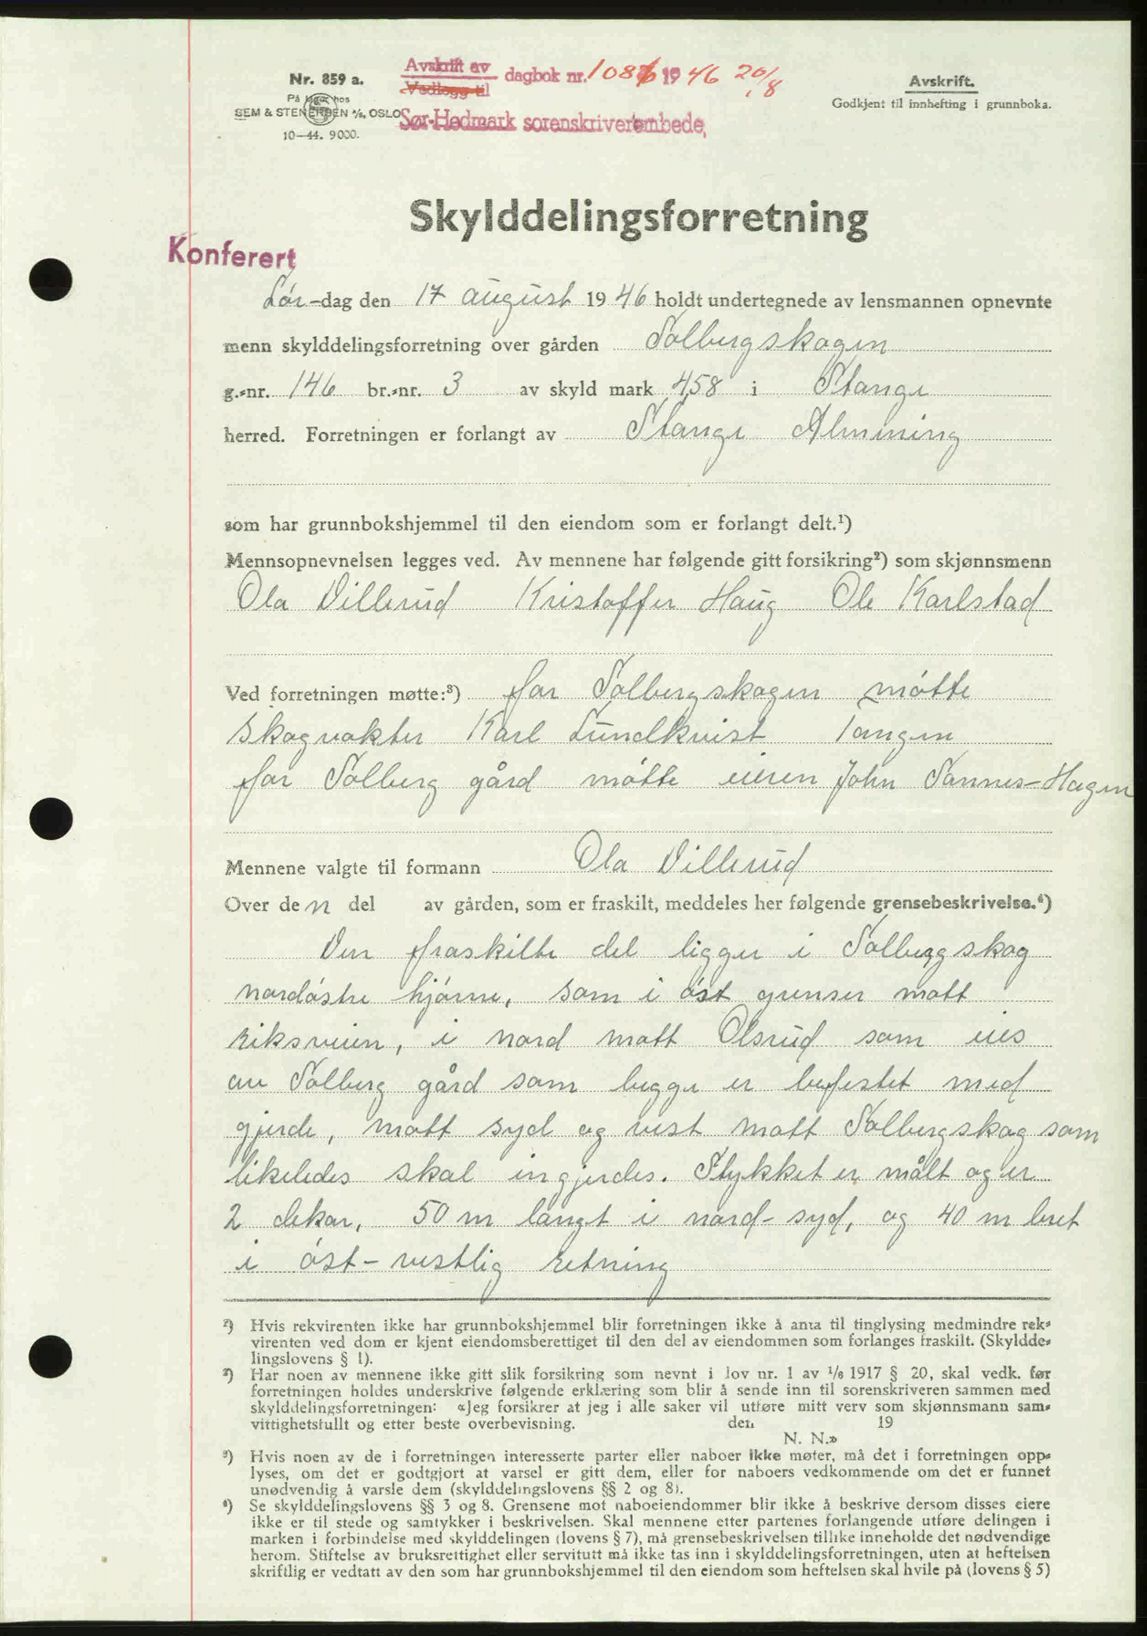 Nr. 859 a.
På lager hos
SEM & STENERSEN A/S, OSLO
10—44. 9000.
Avskrift av
Vedlegg til
dagbok nr. 1086 1946 20/8
Sør-Hedmark sorenskriverembede,
Avskrift.
Godkjent til innhefting i grunnboka.
Skylddelingsforretning
Konferert
Lør-dag den 17 august 1946 holdt undertegnede av lensmannen opnevnte
menn skylddelingsforretning over gården Solbergskogen
g.-nr. 146 br.-nr. 3 av skyld mark 4,58 i Stange
herred. Forretningen er forlangt av Stange Almening
som har grunnbokshjemmel til den eiendom som er forlangt delt.¹)
Mennsopnevnelsen legges ved. Av mennene har følgende gitt forsikring²) som skjønnsmenn
Ola Dillerud Kristoffer Haug Ole Karlstad
Ved forretningen møtte:³) for Solbergskogen møtte
skogvakter Karl Lundkvist Tangen
for Solberg gård møtte eieren John Sannes-Hagen
Mennene valgte til formann Ola Dillerud
Over den del av gården, som er fraskilt, meddeles her følgende grensebeskrivelse.⁴)
Den fraskilte del ligger i Solbergskog
nordøstre hjørne, som i øst grenser mott
riksveien, i nord mott Olsrud som eies
av Solberg gård som begge er befestet med
gjerde, mott syd og vest mott Solbergskog som
likeledes skal ingjerdes. Stykket er målt og er
2 dekar, 50 m langt i nord-syd, og 40 m bret
i øst-vestlig retning
²) Hvis rekvirenten ikke har grunnbokshjemmel blir forretningen ikke å anta til tinglysing medmindre rek-
virenten ved dom er kjent eiendomsberettiget til den del av eiendommen som forlanges fraskilt. (Skyldde-
lingslovens § 1).
²) Har noen av mennene ikke gitt slik forsikring som nevnt i lov nr. 1 av 1/6 1917 § 20, skal vedk. før
forretningen holdes underskrive følgende erklæring som blir å sende inn til sorenskriveren sammen med
skylddelingsforretningen: «Jeg forsikrer at jeg i alle saker vil utføre mitt verv som skjønnsmann sam-
vittighetsfullt og etter beste overbevisning. den 19
N. N.»
³) Hvis noen av de i forretningen interesserte parter eller naboer ikke møter, må det i forretningen opp-
lyses, om det er godtgjort at varsel er gitt dem, eller for naboers vedkommende om det er funnet
unødvendig å varsle dem (skylddelingslovens §§ 2 og 8).
⁴) Se skylddelingslovens §§ 3 og 8. Grensene mot naboeiendommer blir ikke å beskrive dersom disses eiere
ikke er til stede og samtykker i beskrivelsen. Skal mennene etter partenes forlangende utføre delingen i
marken i forbindelse med skylddelingen (lovens § 7), må grensebeskrivelsen tillike inneholde det nødvendige
herom. Stiftelse av bruksrettighet eller servitutt må ikke tas inn i skylddelingsforretningen, uten at heftelsen
skriftlig er vedtatt av den som har grunnbokshjemmel til den eiendom som heftelsen skal hvile på (lovens § 5)